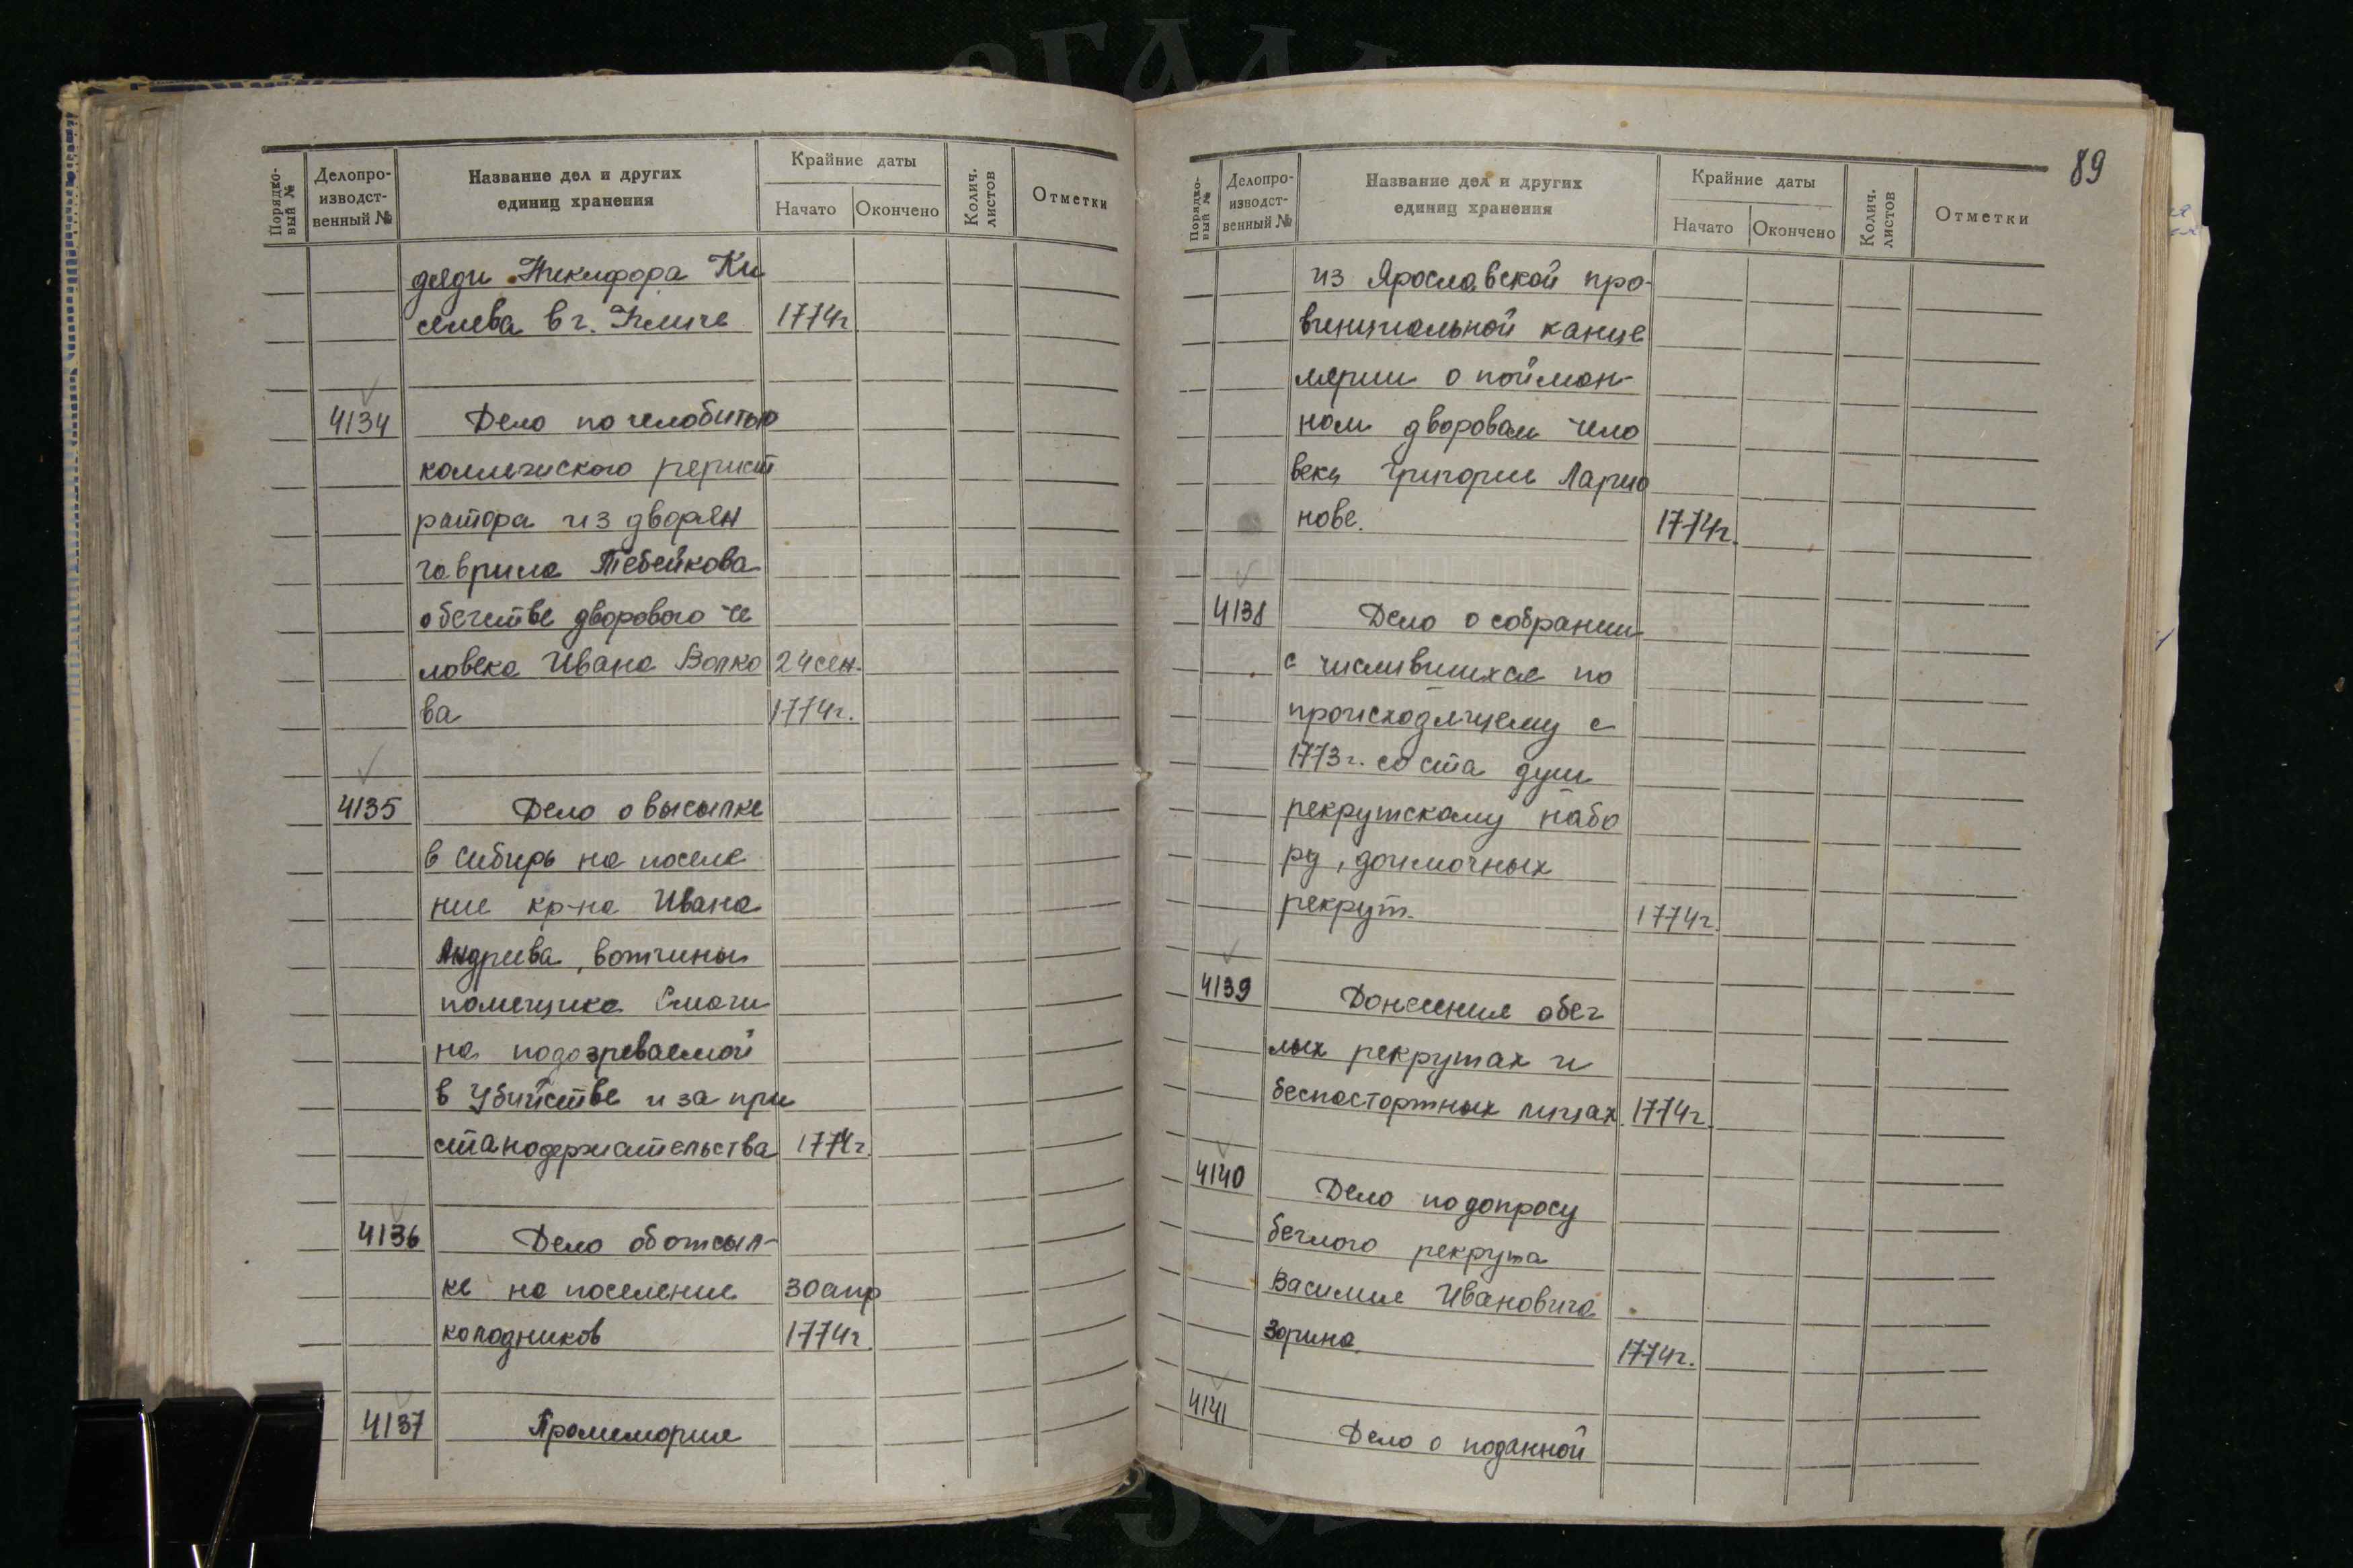 Порядко-
вый №
Делопро-
изводст-
венный №
Название дел и других
единиц хранения
Крайние даты
Начато
Окончено
Колич.
листов
Отметки
дяди Никифора Ки
селева в г.
1774г
4134 Дело по челобитью
коллежского регист
ратора из дворян
Гаврила Тебейкова
о бегстве дворового че
ловека Ивана Волко 24 сен.
ва 1774г.
4135 Дело о высылке
в Сибирь на поселе
ние кр-на Ивана
Андреева, вотчины
помещика Смаги
на подозреваемой
в убийстве и за при
станодержательства 1774г.
4136 Дело об отсыл-
ке на поселение 30 апр
колодников 1774г.
4137 Промемория
89
Порядко-
вый №
Делопро-
изводст-
венный №
Название дел и других
единиц хранения
Крайние даты
Начато
Окончено
Колич.
листов
Отметки
из Ярославской про-
винциальной канце
лярии о пойман-
ном дворовом чело
веке Григории Ларио
нове. 1774г.
4138 Дело о собрании
с числившихся по
происходящему с
1773г. со ста душ
рекрутскому набо
ру, доимочных
рекрут. 1774г.
4139 Донесения о бег
лых рекрутах и
беспаспортных лицах. 1774г.
4140 Дело по допросу
беглого рекрута
Василия Ивановича
Зорина. 1774г.
4141 Дело о поданной